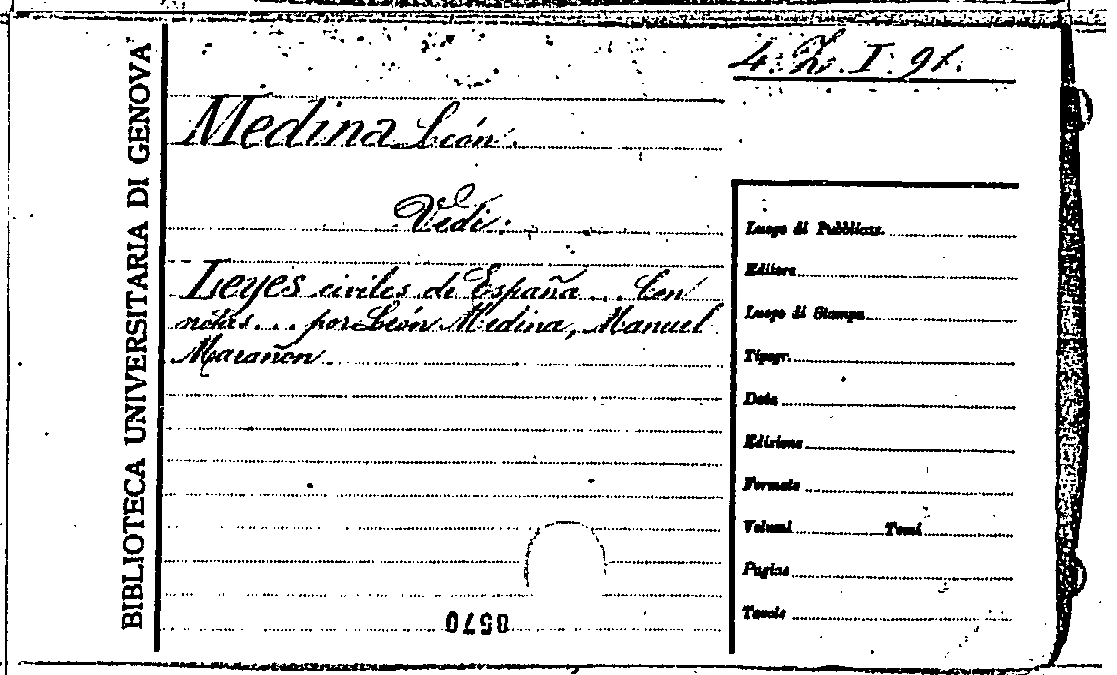 BIBLIOTECA UNIVERSITARIA DI GENOVA
4. Z. I. 91.
Medina León.
Vedi:
Leyes civiles de España... Con
notas... por León Medina, Manuel
Marañon
Luogo di Pubblicaz.
Editore
Luogo di Stampa
Tipogr.
Data
Edizione
Formato
Volumi Tomi
Pagine
Tavole
0570